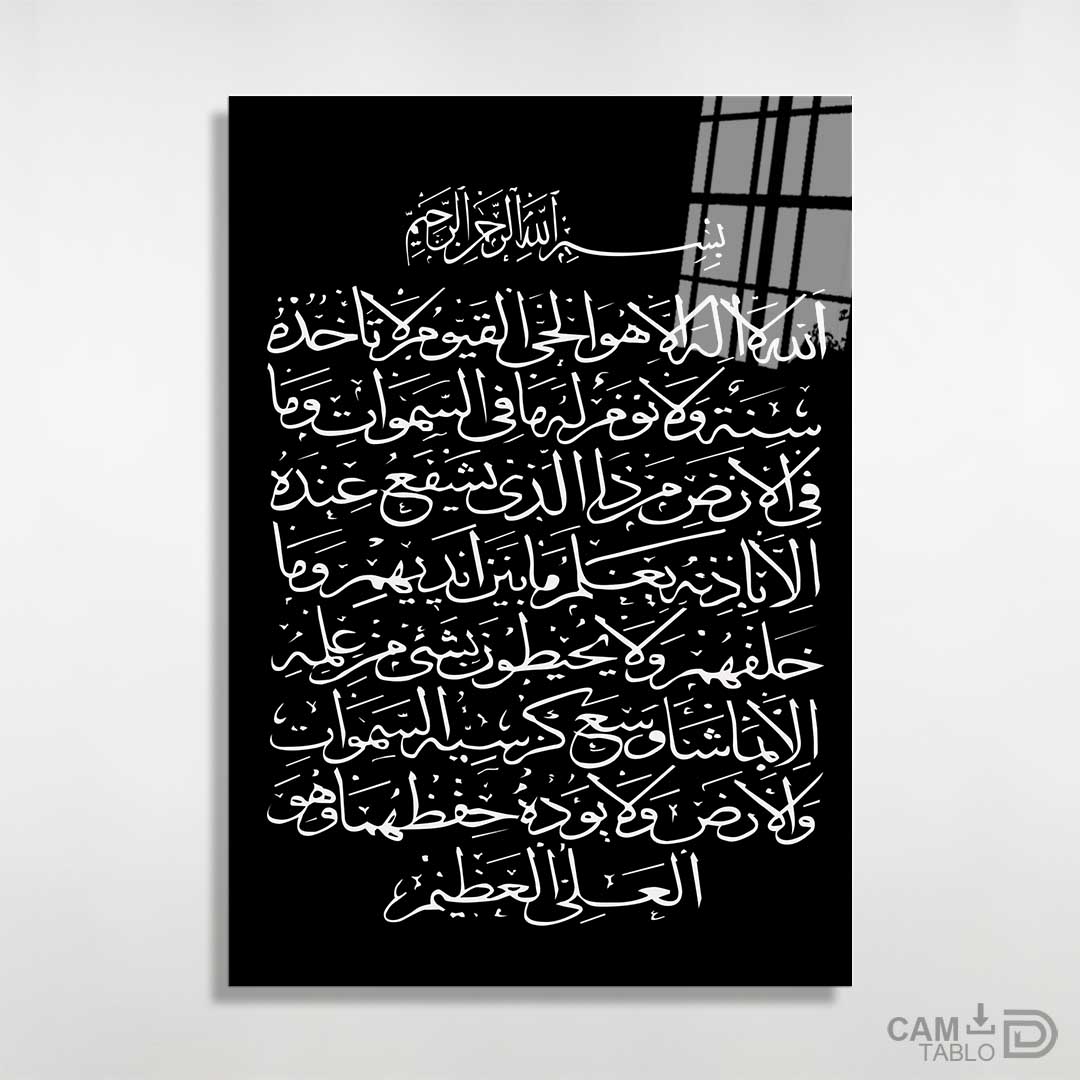 بِسْمِ اللّٰهِ الرَّحْمٰنِ الرَّحِيمِ
اَللّٰهُ لَا اِلٰهَ اِلَّا هُوَ الْحَىُّ الْقَيُّومُ لَا تَأْخُذُهُ
سِنَةٌ وَلَا نَوْمٌ لَهُ مَا فِى السَّمٰوَاتِ وَمَا
فِى الْاَرْضِ مَنْ ذَا الَّذِى يَشْفَعُ عِنْدَهُ
اِلَّا بِاِذْنِهِ يَعْلَمُ مَا بَيْنَ اَيْدِيهِمْ وَمَا
خَلْفَهُمْ وَلَا يُحِيطُونَ بِشَىْءٍ مِنْ عِلْمِهِ
اِلَّا بِمَا شَاءَ وَسِعَ كُرْسِيُّهُ السَّمٰوَاتِ
وَالْاَرْضَ وَلَا يَؤُدُهُ حِفْظُهُمَا وَهُوَ
الْعَلِىُّ الْعَظِيمُ
CAM
TABLO